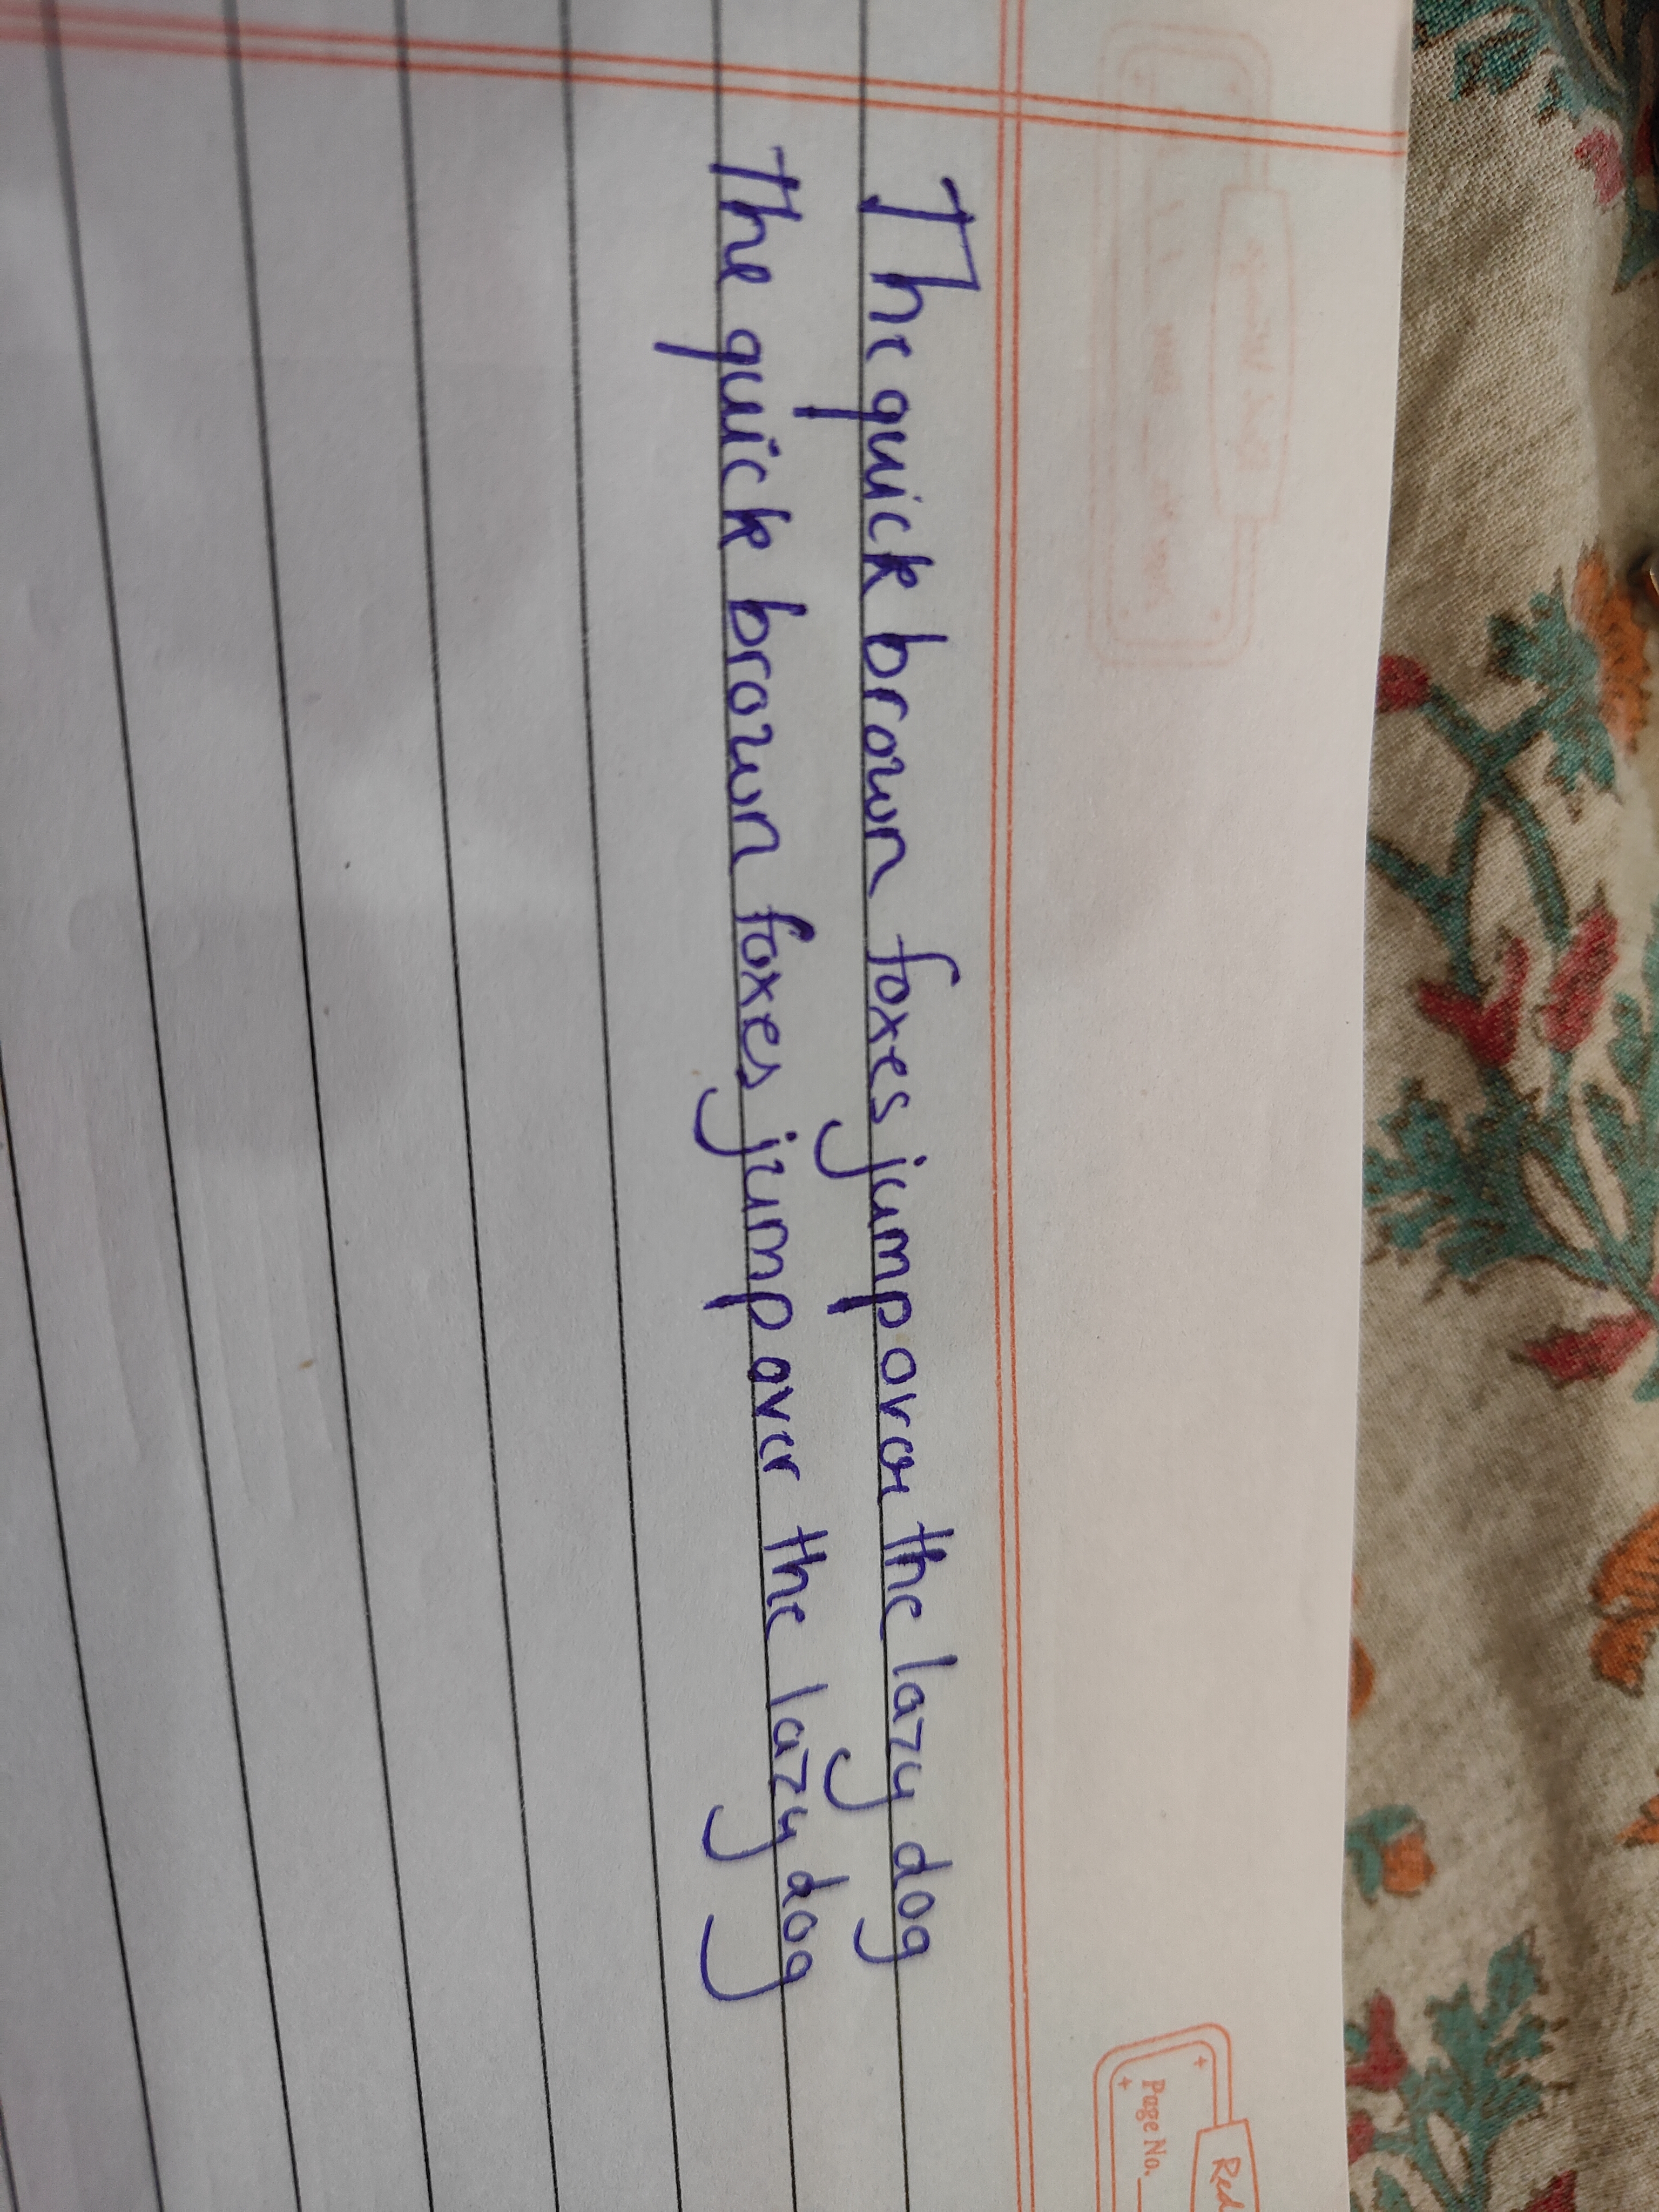 The quick brown foxes jump over the lazy dog
The quick brown foxes jump over the lazy dog
Page No.
Red